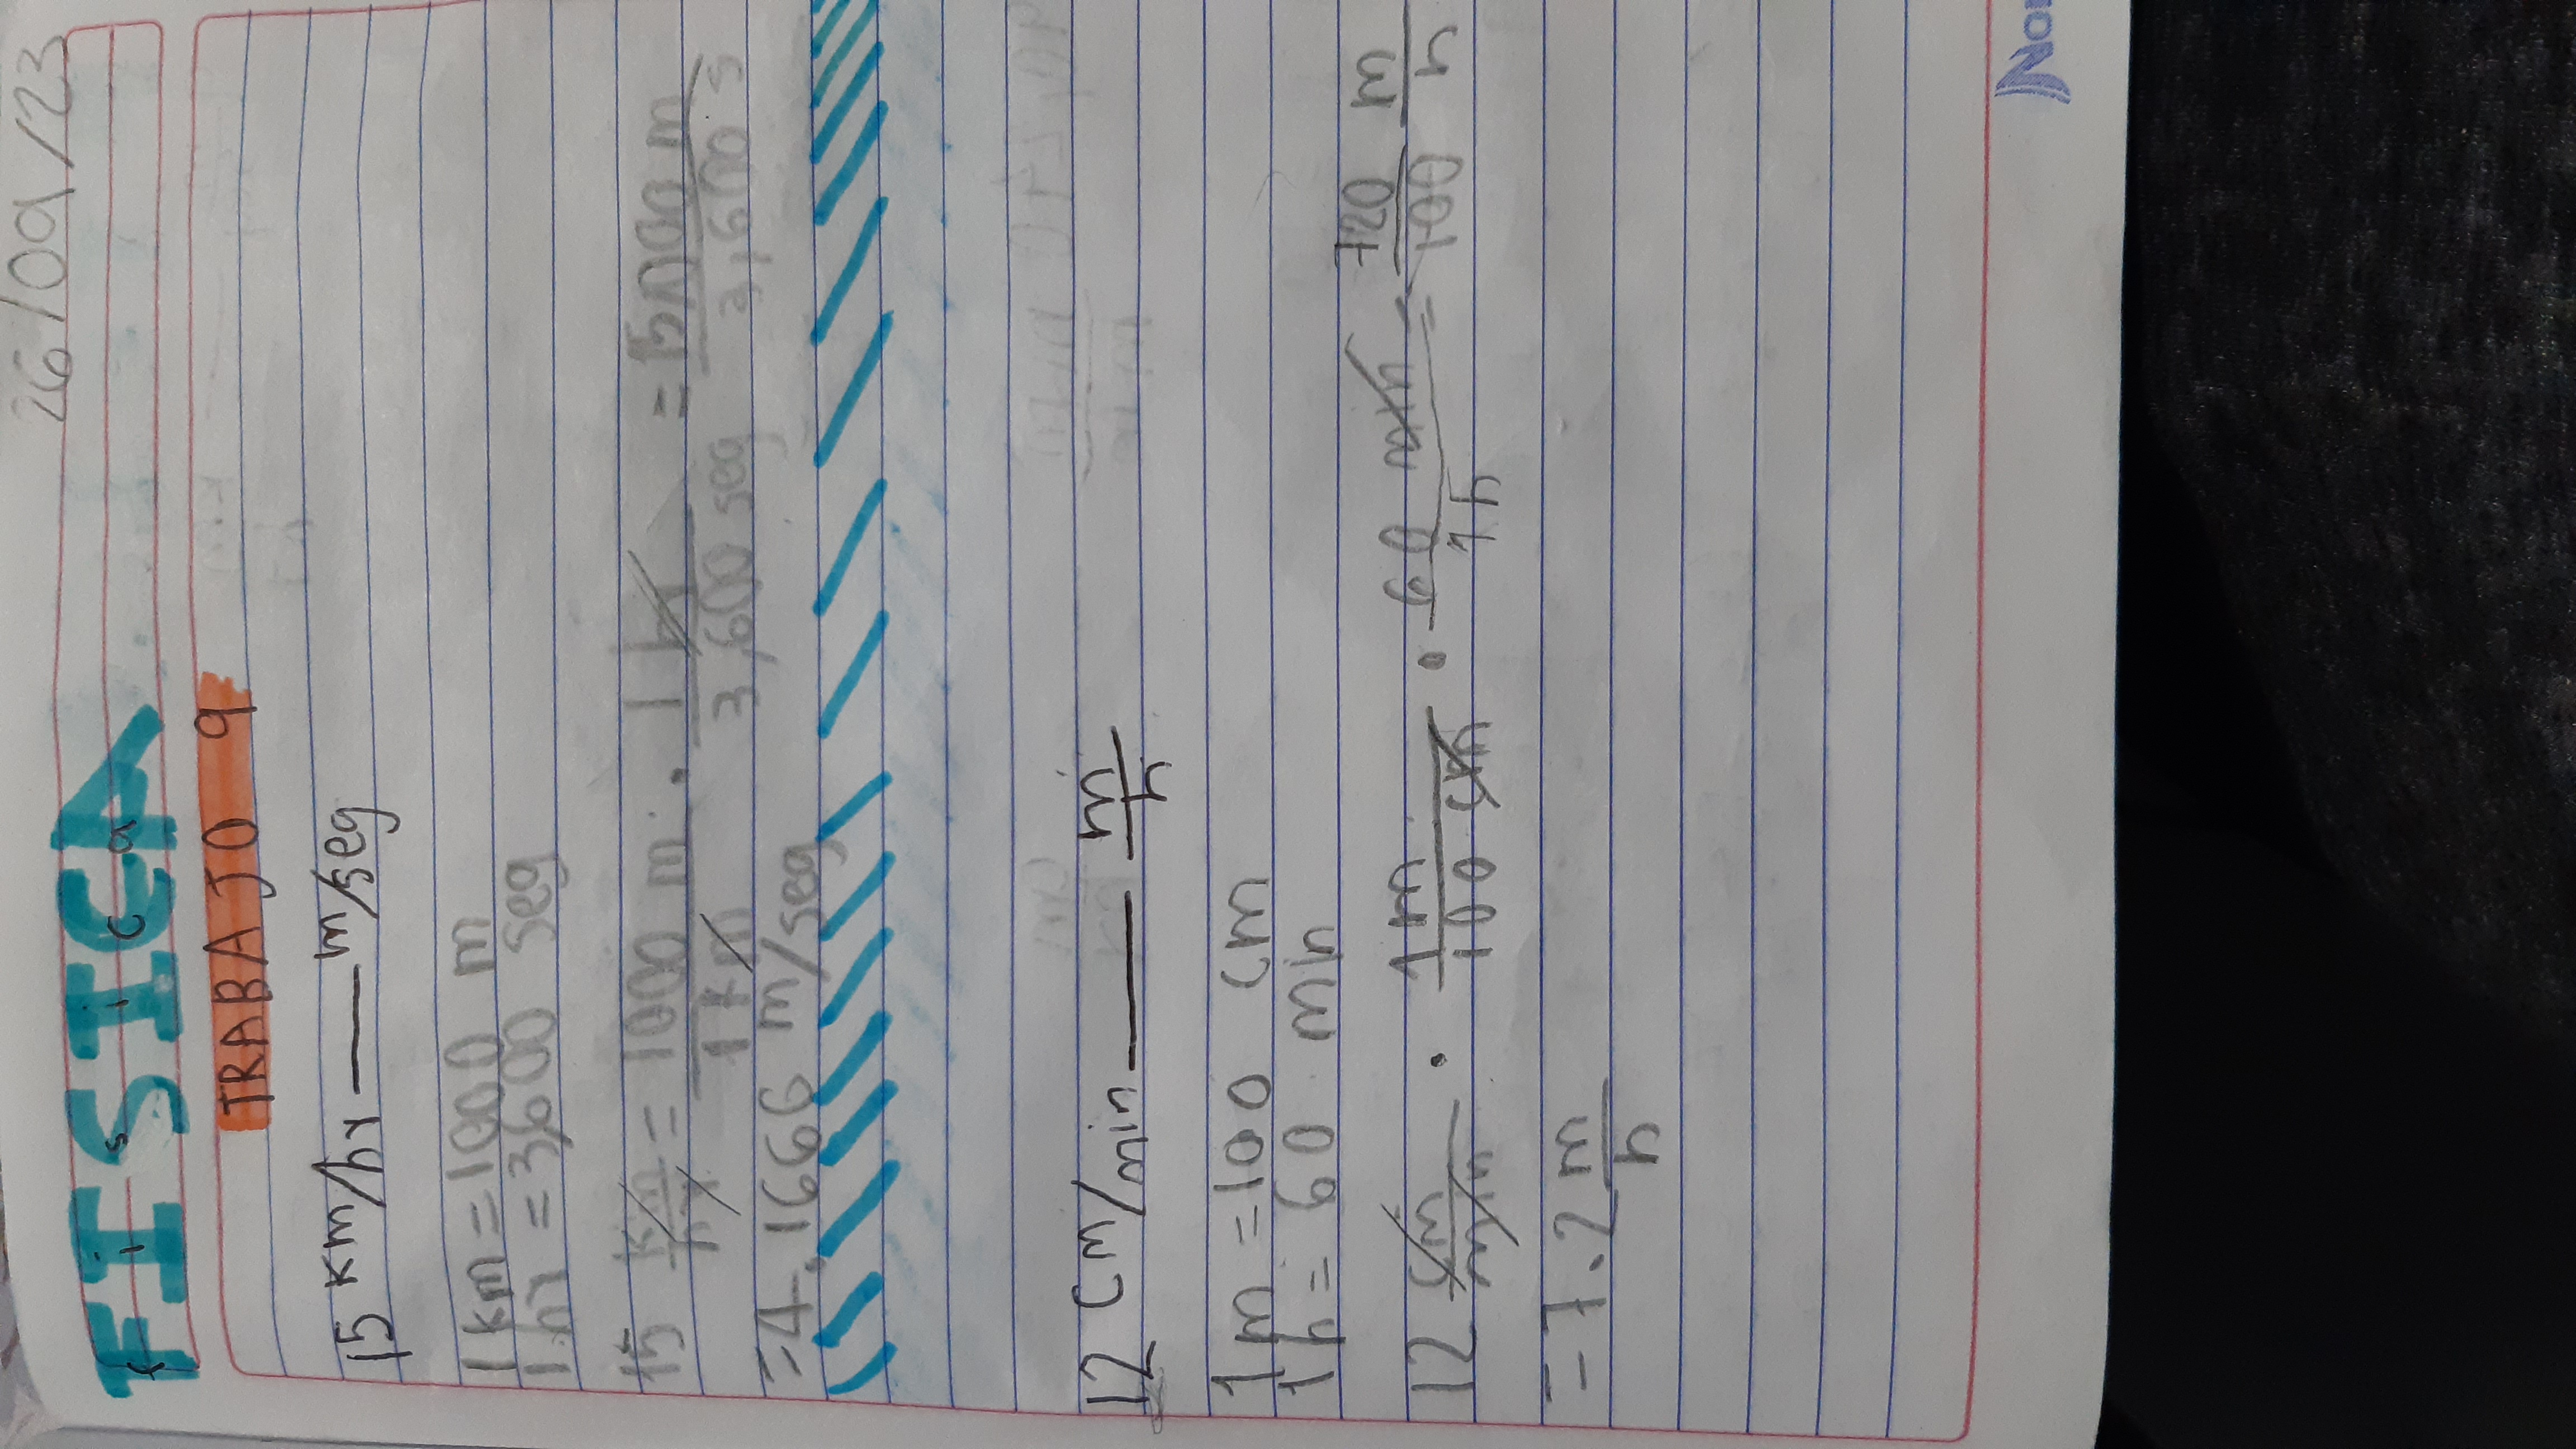 26/09/23
FISICA
Fisica
TRABAJO 9
15 km/hr — m/seg
1 km = 1000 m
1 hr = 3600 seg
15 km/hr = 1000 m / 1 km · 1 h / 3,600 seg = 15000 m / 3,600 s
= 4.1666 m/seg
12 cm/min — m/h
1 m = 100 cm
1 h = 60 min
12 cm/min · 1 m / 100 cm · 60 min / 1 h = 720 / 100 m/h
= 7.2 m/h
Nor